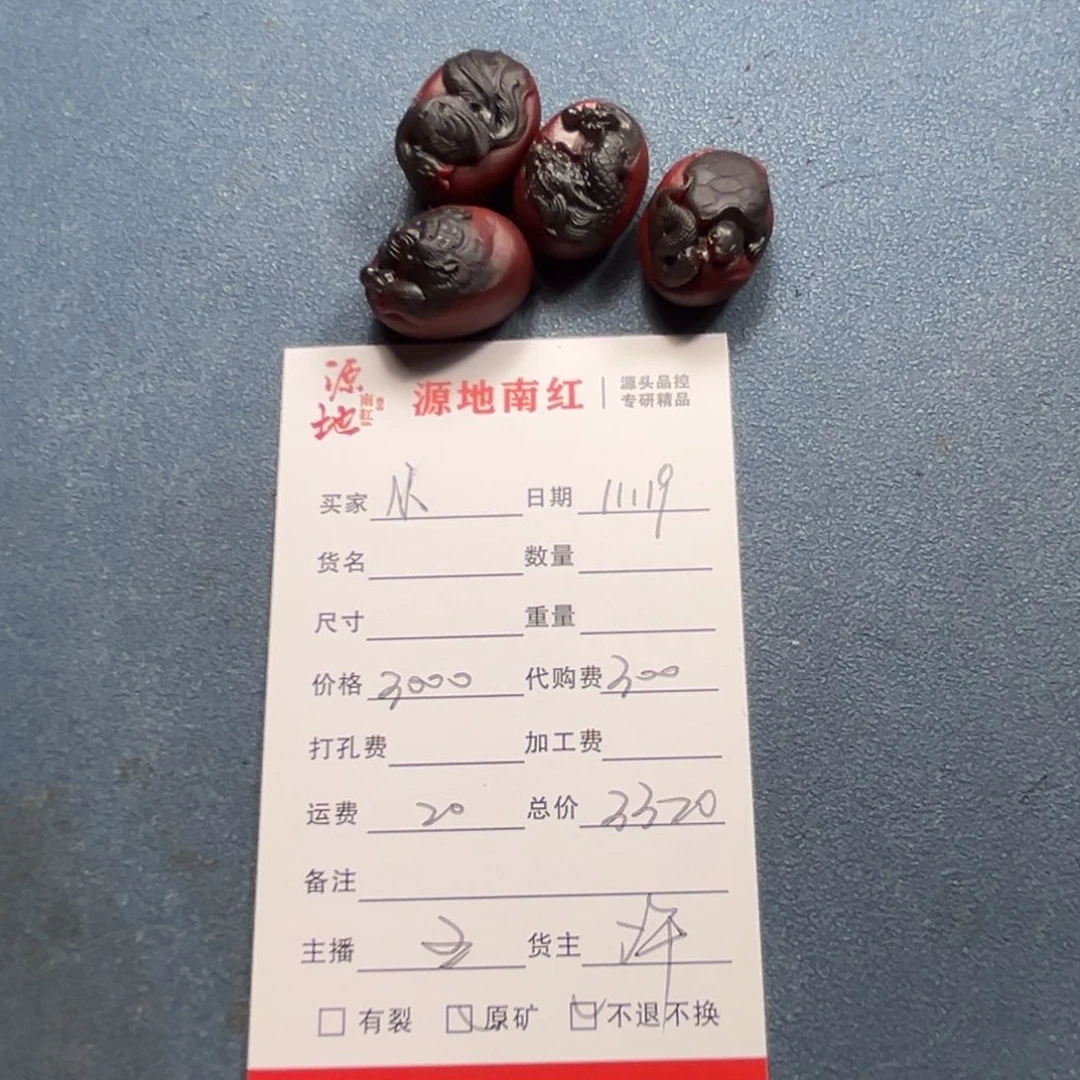 源地
南红
源地南红 源头品控
专研精品
买家 日期 11.19
货名 数量
尺寸 重量
价格 3000 代购费 300
打孔费 加工费
运费 20 总价 3320
备注
主播 货主 许
有裂 原矿 不退不换